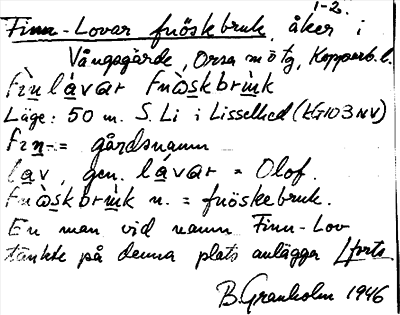 1-2.
Finn-Lovar fnöskbruk, åker i
Vångsgärde, Orsa m ö tg, Kopparb. l.
fìnlávar fnö̀skbrùk
Läge: 50 m. S. Li i Lisselhed (EG103NV)
Fin- = gårdsnamn
Lav, gen. lávar = Olof.
fnö̀skbrùk n. = fnöskebruk.
En man vid namn Finn-Lov
tänkte på denna plats anlägga /forts.
B. Granholm 1946